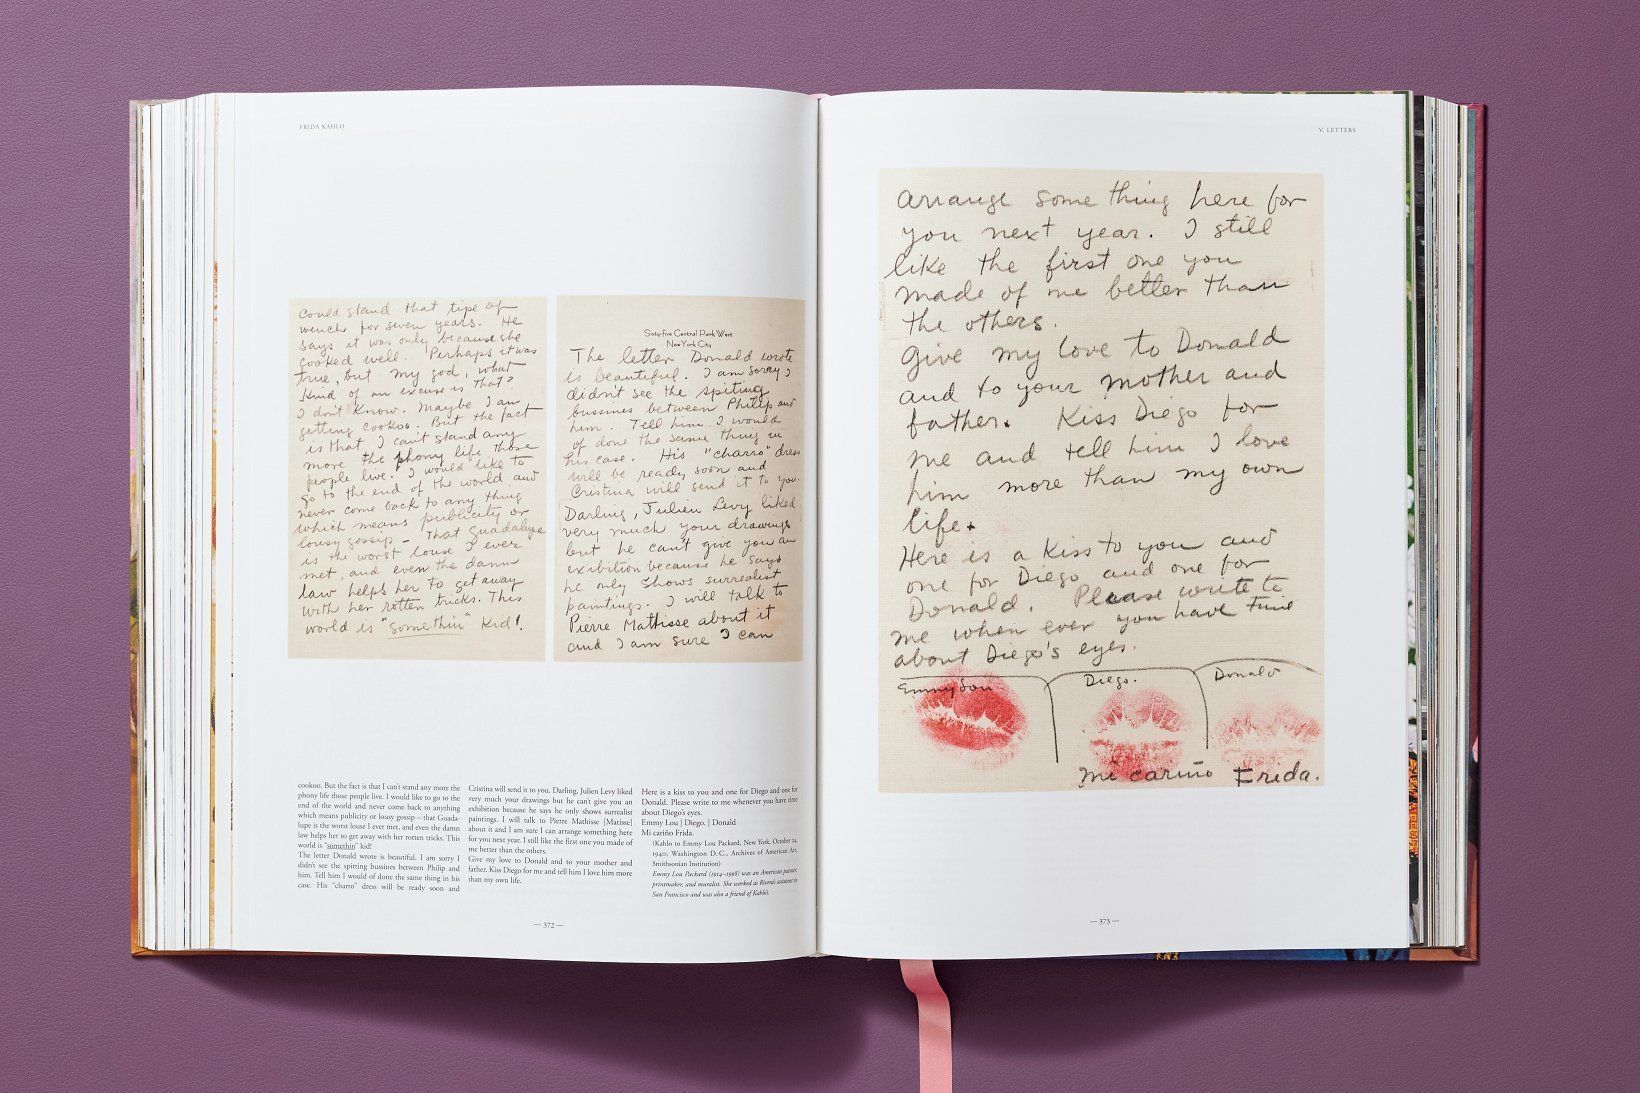 FRIDA KAHLO
could stand that tipe of
wench for seven years. He
says it was only because she
cooked well. Perhaps it was
true, but my god, what
kind of an excuse is that?
I don't know. Maybe I am
getting cookoo. But the fact
is that I can't stand any
more the phony life those
people live. I would like to
go to the end of the world and
never come back to any thing
which means publicity or
lousy gossip – That Guadalupe
is the worst louse I ever
met, and even the damn
law helps her to get away
with her rotten tricks. This
world is "somethin" kid!
Sixty-five Central Park West
New York City
The letter Donald wrote
is beautiful. I am sorry I
didn't see the spiting
bussines between Philip and
him. Tell him I would
of done the same thing in
his case. His "charro" dress
will be ready soon and
Cristina will send it to you.
Darling, Julien Levy liked
very much your drawings
but he can't give you an
exibition because he says
he only shows surrealist
paintings. I will talk to
Pierre Mathisse about it
and I am sure I can
cookoo. But the fact is that I can't stand any more the
phony life those people live. I would like to go to the
end of the world and never come back to anything
which means publicity or lousy gossip – that Guada-
lupe is the worst louse I ever met, and even the damn
law helps her to get away with her rotten tricks. This
world is "somethin" kid!
The letter Donald wrote is beautiful. I am sorry I
didn't see the spitting bussines between Philip and
him. Tell him I would of done the same thing in his
case. His "charro" dress will be ready soon and
Cristina will send it to you. Darling, Julien Levy liked
very much your drawings but he can't give you an
exhibition because he says he only shows surrealist
paintings. I will talk to Pierre Mathisse [Matisse]
about it and I am sure I can arrange something here
for you next year. I still like the first one you made of
me better than the others.
Give my love to Donald and to your mother and
father. Kiss Diego for me and tell him I love him more
than my own life.
Here is a kiss to you and one for Diego and one for
Donald. Please write to me whenever you have time
about Diego's eyes.
Emmy Lou | Diego. | Donald
Mi cariño Frida.
(Kahlo to Emmy Lou Packard, New York, October 24,
1940; Washington D. C., Archives of American Art,
Smithsonian Institution)
Emmy Lou Packard (1914–1998) was an American painter,
printmaker, and muralist. She worked as Rivera's assistant in
San Francisco and was also a friend of Kahlo's.
— 372 —
V. LETTERS
arrange some thing here for
you next year. I still
like the first one you
made of me better than
the others.
Give my love to Donald
and to your mother and
father. Kiss Diego for
me and tell him I love
him more than my own
life.
Here is a kiss to you and
one for Diego and one for
Donald. Please write to
me when ever you have time
about Diego's eyes.
Emmy Lou
Diego.
Donald
Mi cariño Frida.
— 373 —